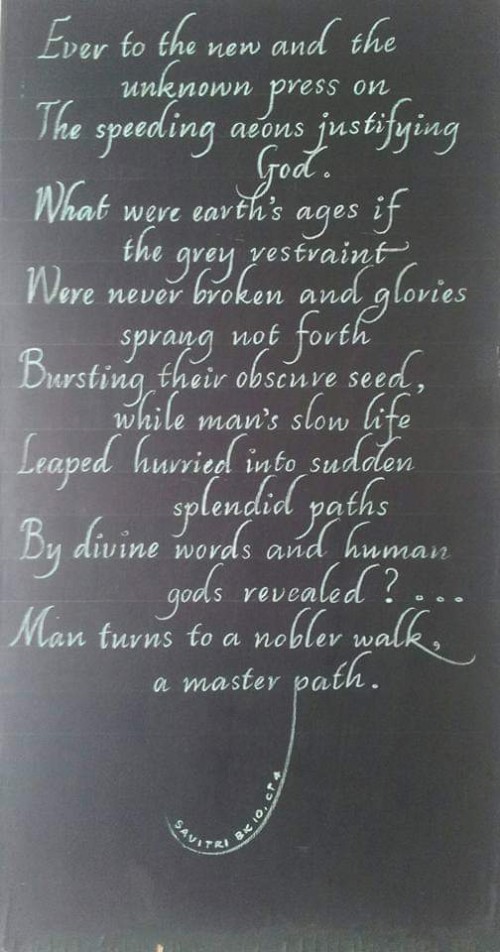 Ever to the new and the
unknown press on
The speeding aeons justifying
God.
What were earth's ages if
the grey restraint
Were never broken and glories
sprang not forth
Bursting their obscure seed,
while man's slow life
Leaped hurried into sudden
splendid paths
By divine words and human
gods revealed ? ...
Man turns to a nobler walk,
a master path.
SAVITRI BK 10, CT 4